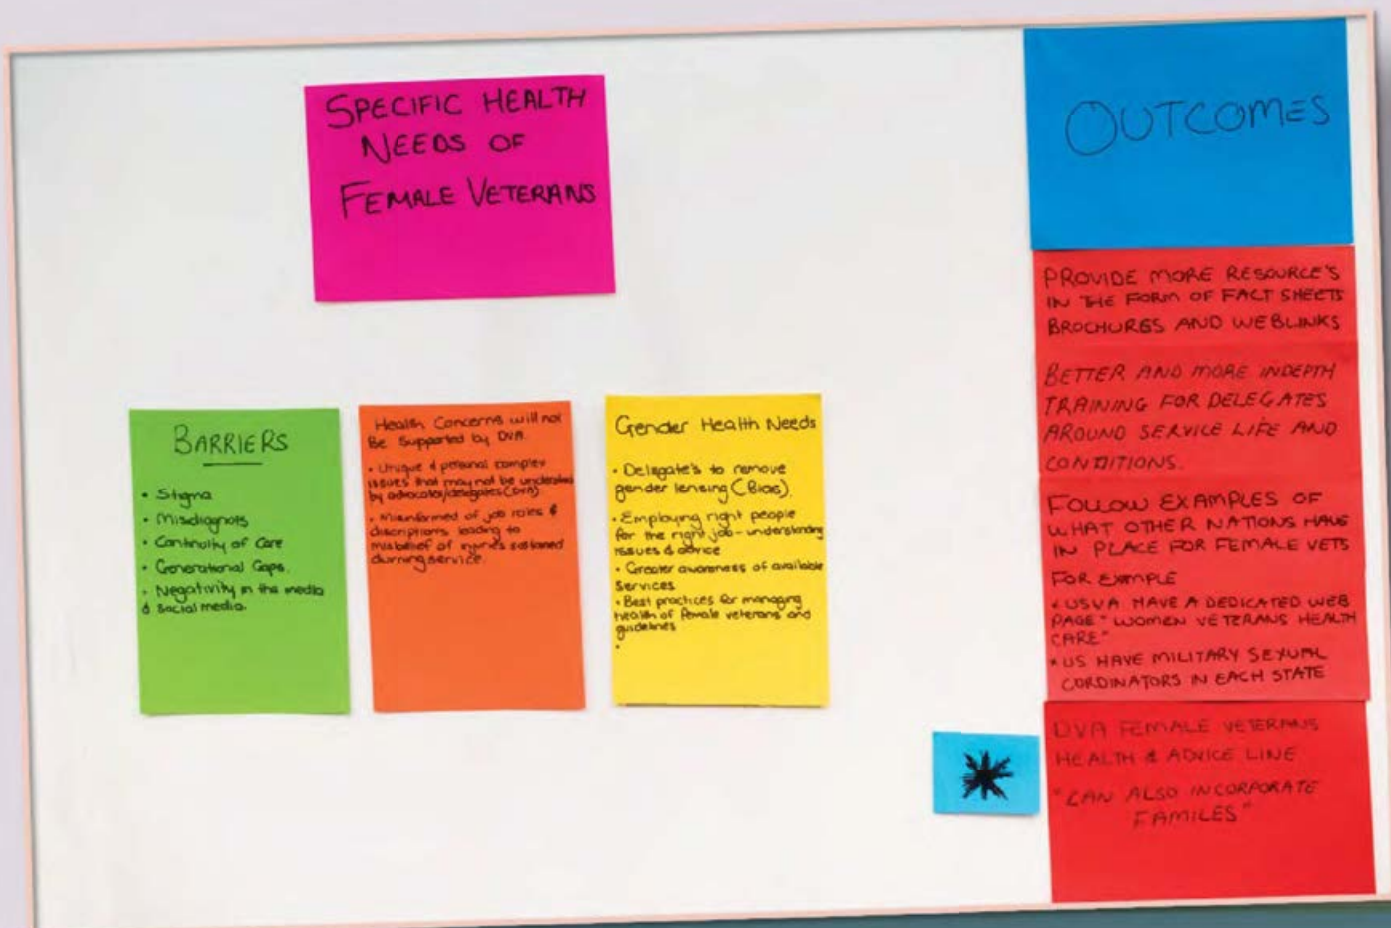 SPECIFIC HEALTH
NEEDS OF
FEMALE VETERANS
BARRIERS
• Stigma
• Misdiagnois
• Continuity of Care
• Generational Gaps.
• Negativity in the media
& social media.
Health Concerns will not
Be Supported by DVA.
• Unique & personal complex
issues that may not be understood
by advocates/delegates (DVA)
• Misinformed of job roles &
discriptions leading to
misbelief of injuries sustained
durning service.
Gender Health Needs
• Delegate's to remove
gender lensing (Bias).
• Employing right people
for the right job - understanding
issues & advice
• Greater awareness of available
Services
• Best practices for managing
health of female veterans and
guidelines
•
OUTCOMES
PROVIDE MORE RESOURCE'S
IN THE FORM OF FACT SHEETS
BROCHURES AND WEBLINKS
BETTER AND MORE INDEPTH
TRAINING FOR DELEGATES
AROUND SERVICE LIFE AND
CONDITIONS.
FOLLOW EXAMPLES OF
WHAT OTHER NATIONS HAVE
IN PLACE FOR FEMALE VETS
FOR EXAMPLE
* USVA HAVE A DEDICATED WEB
PAGE "WOMEN VETERANS HEALTH
CARE"
* US HAVE MILITARY SEXUAL
CORDINATORS IN EACH STATE
DVA FEMALE VETERANS
HEALTH & ADVICE LINE
"CAN ALSO INCORPORATE
FAMILES"